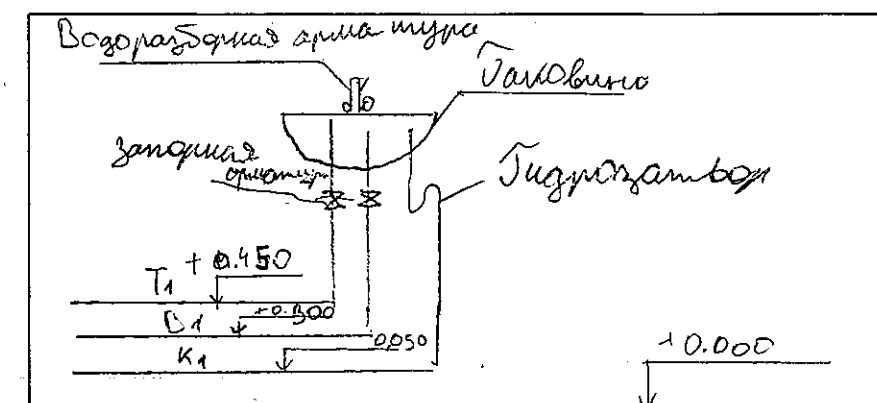 Водоразборная арматура
Раковина
запорная
арматура
Гидрозатвор
+0.450
T1
+0.300
В1
0,050
К1
+0.000